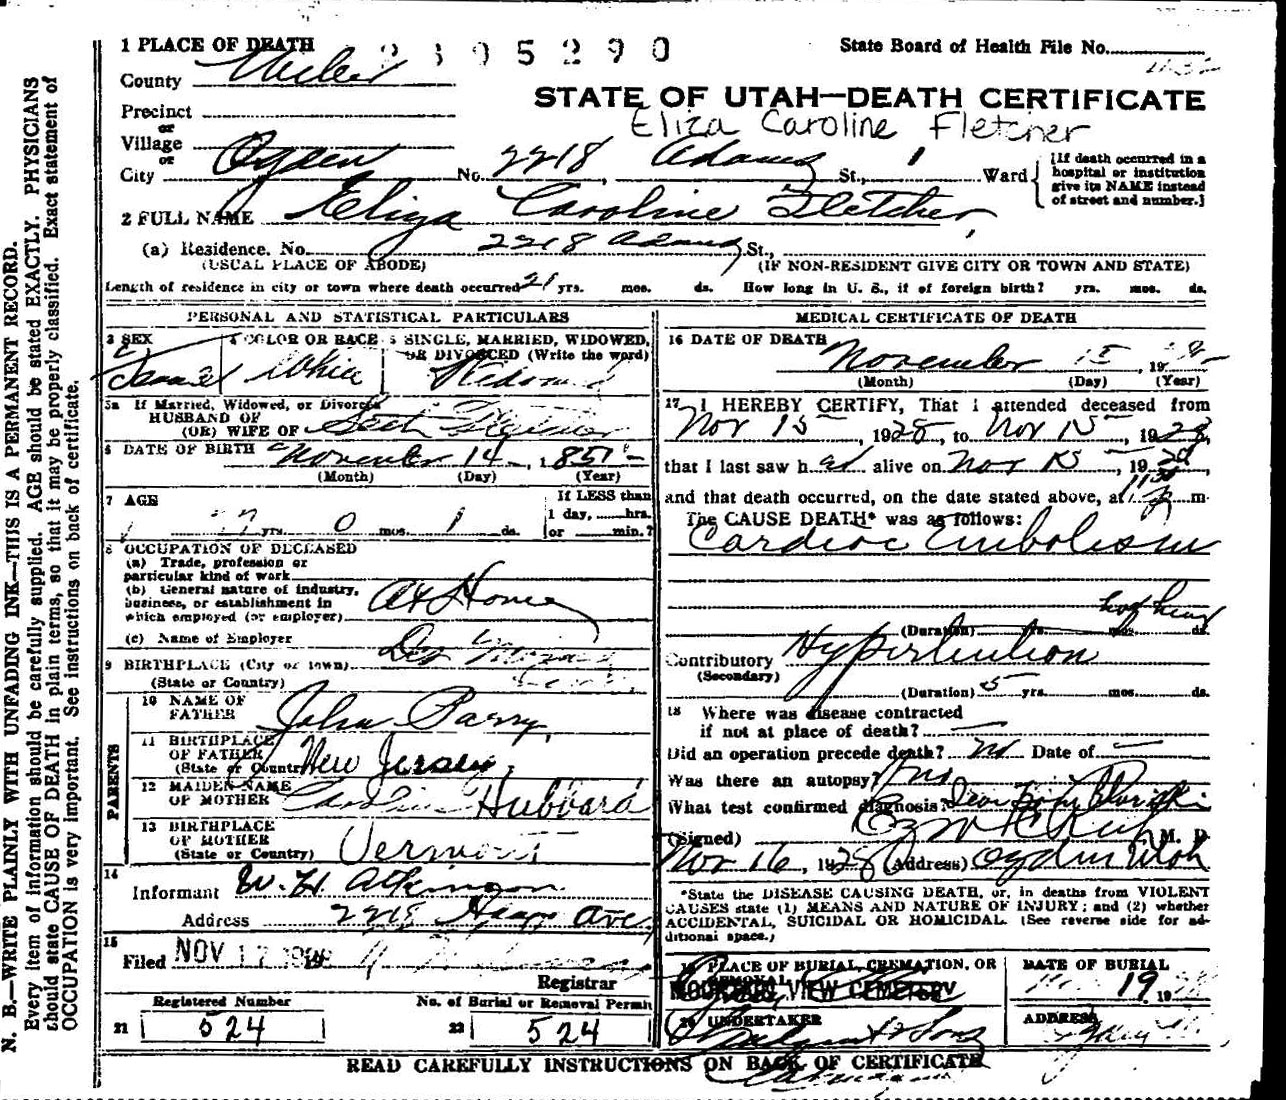 1 PLACE OF DEATH 2305290 State Board of Health File No.
County Weber
STATE OF UTAH—DEATH CERTIFICATE
Precinct
Eliza Caroline Fletcher
or
Village
or
City Ogden No. 2218, Adams St., Ward
[If death occurred in a hospital or institution give its NAME instead of street and number.]
2 FULL NAME Eliza Caroline Fletcher
(a) Residence. No. 2218 Adams St.,
(USUAL PLACE OF ABODE) (IF NON-RESIDENT GIVE CITY OR TOWN AND STATE)
Length of residence in city or town where death occurred 21 yrs. mos. ds. How long in U. S., if of foreign birth? yrs. mos. ds.
PERSONAL AND STATISTICAL PARTICULARS
3 SEX 4 COLOR OR RACE 5 SINGLE, MARRIED, WIDOWED,
OR DIVORCED (Write the word)
Female White Widowed
5a If Married, Widowed, or Divorced
HUSBAND OF
(OR) WIFE OF Seth Fletcher
6 DATE OF BIRTH November 14 1851
(Month) (Day) (Year)
7 AGE If LESS than
77 yrs. 0 mos. 1 ds. 1 day, hrs.
or min.?
8 OCCUPATION OF DECEASED
(a) Trade, profession or
particular kind of work
(b) General nature of industry,
business, or establishment in
which employed (or employer) At Home
(c) Name of Employer
9 BIRTHPLACE (City or town) Des Moines
(State or Country)
PARENTS
10 NAME OF
FATHER John Parry
11 BIRTHPLACE
OF FATHER
(State or Country) New Jersey
12 MAIDEN NAME
OF MOTHER Caroline Hubbard
13 BIRTHPLACE
OF MOTHER
(State or Country) Vermont
14
Informant W. H. Atkinson
Address Ave
15
Filed NOV 17 1928
Registrar
Registered Number No. of Burial or Removal Permit
21 524 22 524
MEDICAL CERTIFICATE OF DEATH
16 DATE OF DEATH
November 15, 1928
(Month) (Day) (Year)
17 I HEREBY CERTIFY, That I attended deceased from
Nov 15, 1928, to Nov 15, 1928,
that I last saw her alive on Nov 15, 1928,
and that death occurred, on the date stated above, at 11:30 p m.
The CAUSE DEATH* was as follows:
Cardiac Embolism
(Duration) yrs. mos. ds.
Contributory Hypertention
(Secondary)
(Duration) 5 yrs. mos. ds.
18 Where was disease contracted
if not at place of death?
Did an operation precede death? no Date of
Was there an autopsy? no
What test confirmed diagnosis?
(Signed) M. D.
Nov 16, 1928 (Address) Ogden Utah
*State the DISEASE CAUSING DEATH, or, in deaths from VIOLENT
CAUSES state (1) MEANS AND NATURE OF INJURY; and (2) whether
ACCIDENTAL, SUICIDAL OR HOMICIDAL. (See reverse side for ad-
ditional space.)
19 PLACE OF BURIAL, CREMATION, OR
REMOVAL
MOUNTAIN VIEW CEMETERY
DATE OF BURIAL
19 1928
20 UNDERTAKER ADDRESS
& Sons
READ CAREFULLY INSTRUCTIONS ON BACK OF CERTIFICATE
N. B.—WRITE PLAINLY WITH UNFADING INK—THIS IS A PERMANENT RECORD.
Every item of information should be carefully supplied. AGE should be stated EXACTLY. PHYSICIANS
should state CAUSE OF DEATH in plain terms, so that it may be properly classified. Exact statement of
OCCUPATION is very important. See instructions on back of certificate.